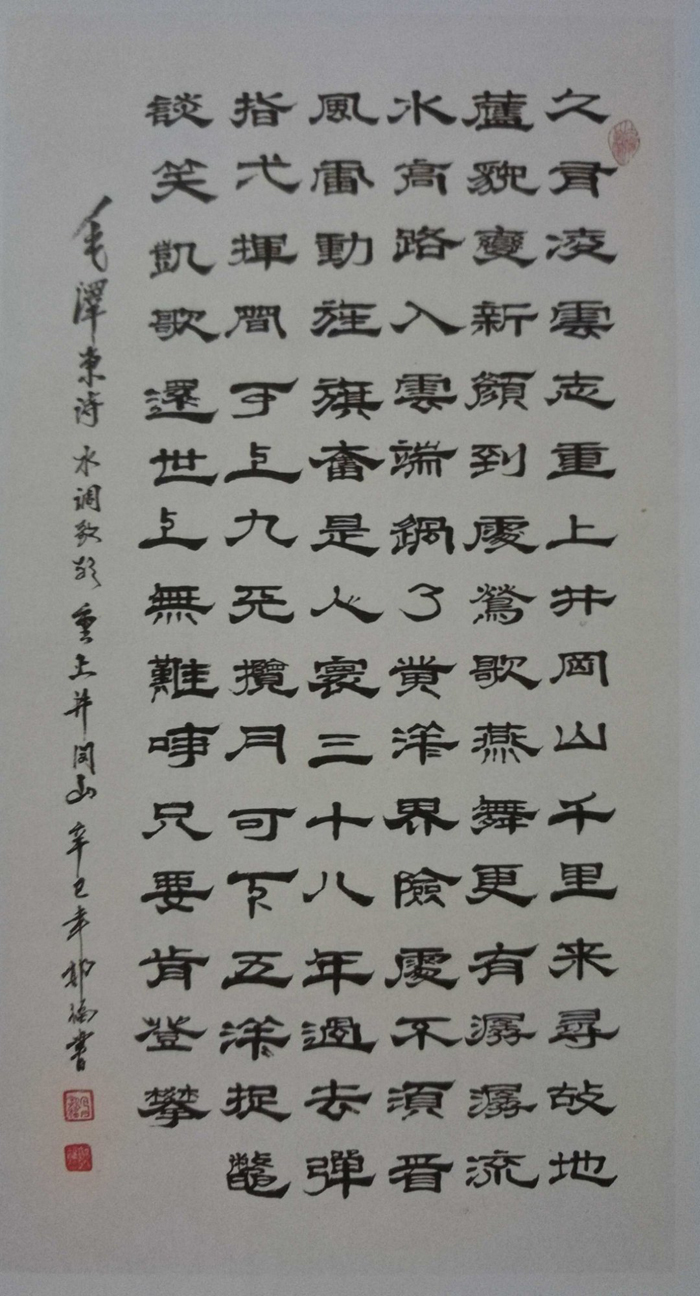 久有凌雲志重上井岡山千里来尋故地
舊貌變新顏到處鶯歌燕舞更有潺潺流
水高路入雲端過了黄洋界險處不須看
風雷動旌旗奮是人寰三十八年過去彈
指弌揮間可上九天攬月可下五洋捉鱉
談笑凱歌還世上無難事只要肯登攀
毛澤東詩水调歌头重上井岡山辛巳年書